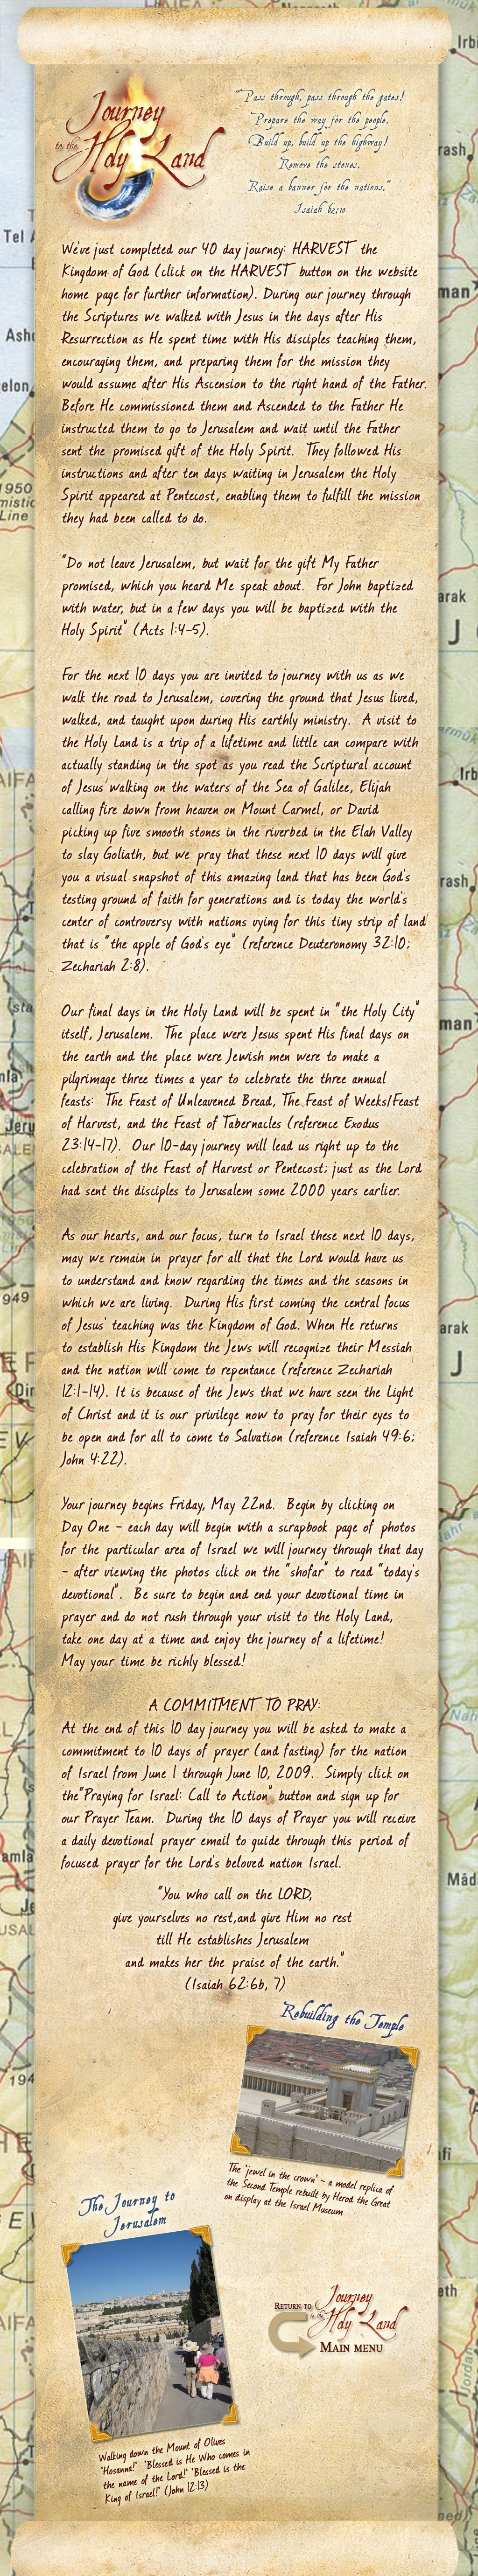 Journey
to the Holy Land
"Pass through, pass through the gates!
Prepare the way for the people.
Build up, build up the highway!
Remove the stones.
Raise a banner for the nations."
Isaiah 62:10
We've just completed our 40 day journey: HARVEST the
Kingdom of God (click on the HARVEST button on the website
home page for further information). During our journey through
the Scriptures we walked with Jesus in the days after His
Resurrection as He spent time with His disciples teaching them,
encouraging them, and preparing them for the mission they
would assume after His Ascension to the right hand of the Father.
Before He commissioned them and Ascended to the Father He
instructed them to go to Jerusalem and wait until the Father
sent the promised gift of the Holy Spirit. They followed His
instructions and after ten days waiting in Jerusalem the Holy
Spirit appeared at Pentecost, enabling them to fulfill the mission
they had been called to do.
"Do not leave Jerusalem, but wait for the gift My Father
promised, which you heard Me speak about. For John baptized
with water, but in a few days you will be baptized with the
Holy Spirit" (Acts 1:4-5).
For the next 10 days you are invited to journey with us as we
walk the road to Jerusalem, covering the ground that Jesus lived,
walked, and taught upon during His earthly ministry. A visit to
the Holy Land is a trip of a lifetime and little can compare with
actually standing in the spot as you read the Scriptural account
of Jesus walking on the waters of the Sea of Galilee, Elijah
calling fire down from heaven on Mount Carmel, or David
picking up five smooth stones in the riverbed in the Elah Valley
to slay Goliath, but we pray that these next 10 days will give
you a visual snapshot of this amazing land that has been God's
testing ground of faith for generations and is today the world's
center of controversy with nations vying for this tiny strip of land
that is "the apple of God's eye" (reference Deuteronomy 32:10;
Zechariah 2:8).
Our final days in the Holy Land will be spent in "the Holy City"
itself, Jerusalem. The place were Jesus spent His final days on
the earth and the place were Jewish men were to make a
pilgrimage three times a year to celebrate the three annual
feasts: The Feast of Unleavened Bread, The Feast of Weeks/Feast
of Harvest, and the Feast of Tabernacles (reference Exodus
23:14-17). Our 10-day journey will lead us right up to the
celebration of the Feast of Harvest or Pentecost; just as the Lord
had sent the disciples to Jerusalem some 2000 years earlier.
As our hearts, and our focus, turn to Israel these next 10 days,
may we remain in prayer for all that the Lord would have us
to understand and know regarding the times and the seasons in
which we are living. During His first coming the central focus
of Jesus' teaching was the Kingdom of God. When He returns
to establish His Kingdom the Jews will recognize their Messiah
and the nation will come to repentance (reference Zechariah
12:1-14). It is because of the Jews that we have seen the Light
of Christ and it is our privilege now to pray for their eyes to
be open and for all to come to Salvation (reference Isaiah 49:6;
John 4:22).
Your journey begins Friday, May 22nd. Begin by clicking on
Day One - each day will begin with a scrapbook page of photos
for the particular area of Israel we will journey through that day
- after viewing the photos click on the "shofar" to read "today's
devotional". Be sure to begin and end your devotional time in
prayer and do not rush through your visit to the Holy Land,
take one day at a time and enjoy the journey of a lifetime!
May your time be richly blessed!
A COMMITMENT TO PRAY:
At the end of this 10 day journey you will be asked to make a
commitment to 10 days of prayer (and fasting) for the nation
of Israel from June 1 through June 10, 2009. Simply click on
the"Praying for Israel: Call to Action" button and sign up for
our Prayer Team. During the 10 days of Prayer you will receive
a daily devotional prayer email to guide through this period of
focused prayer for the Lord's beloved nation Israel.
"You who call on the LORD,
give yourselves no rest,and give Him no rest
till He establishes Jerusalem
and makes her the praise of the earth."
(Isaiah 62:6b, 7)
Rebuilding the Temple
The 'jewel in the crown' - a model replica of
the Second Temple rebuilt by Herod the Great
on display at the Israel Museum
The Journey to
Jerusalem
Walking down the Mount of Olives
"Hosanna!" "Blessed is He Who comes in
the name of the Lord!" "Blessed is the
King of Israel!" (John 12:13)
RETURN TO
Journey
to the Holy Land
MAIN MENU